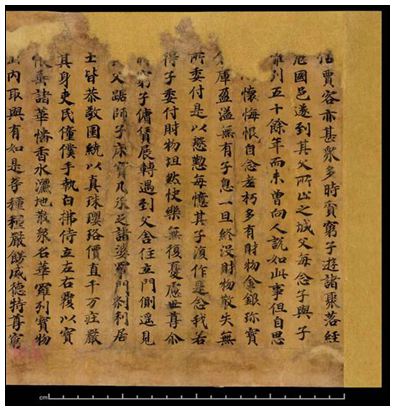 估賈客亦甚衆多時貧窮子遊諸聚落經
歷國邑遂到其父所止之城父每念子與子
離別五十餘年而未曾向人說如此事但自思
懷悔恨自念老朽多有財物金銀珎寶
庫盈溢無有子息一旦終没財物散失無
所委付是以慇懃每憶其子復作是念我若
得子委付財物坦然快樂無復憂慮世尊尒
窮子傭賃展轉遇到父舍住立門側遥見
父踞師子床寶几承足諸婆羅門刹利居
士皆恭敬圍繞以真珠瓔珞價直千万莊嚴
其身吏民僮僕手執白拂侍立左右覆以寶
帳垂諸華幡香水灑地散衆名華羅列寶物
出內取與有如是等種種嚴飾威德特尊窮
cm